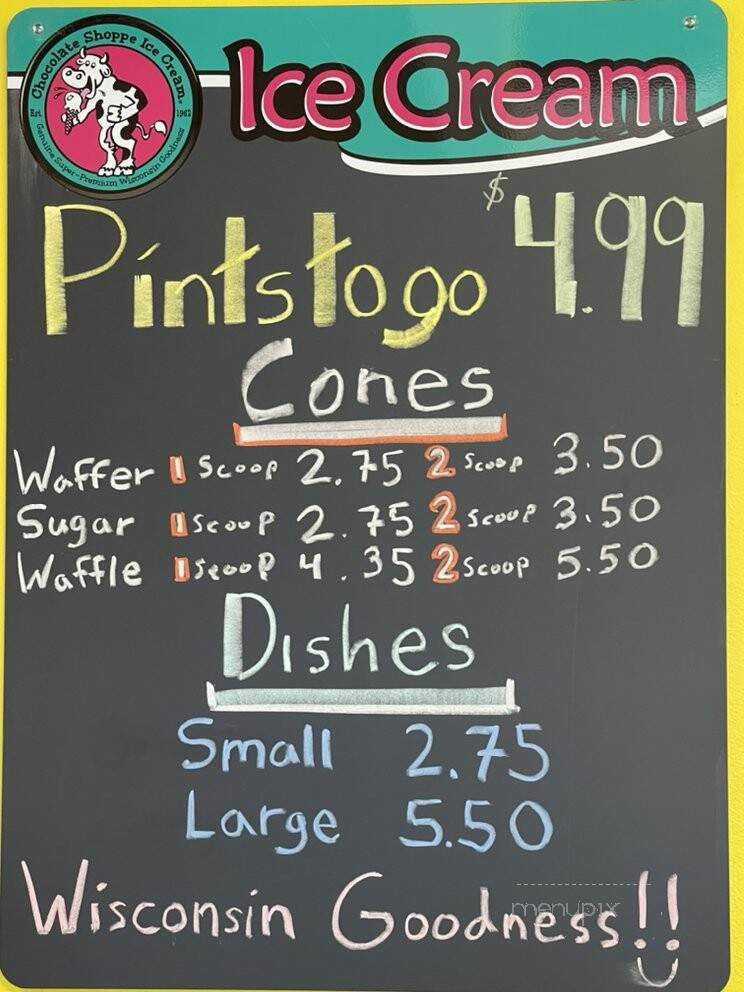 Chocolate Shoppe Ice Cream®
Est. 1962
Genuine Super-Premium Wisconsin Goodness
Ice Cream
Pints to go $4.99
Cones
Waffer 1 Scoop 2.75 2 Scoop 3.50
Sugar 1 Scoop 2.75 2 Scoop 3.50
Waffle 1 Scoop 4.35 2 Scoop 5.50
Dishes
Small 2.75
Large 5.50
Wisconsin Goodness!!
menupix